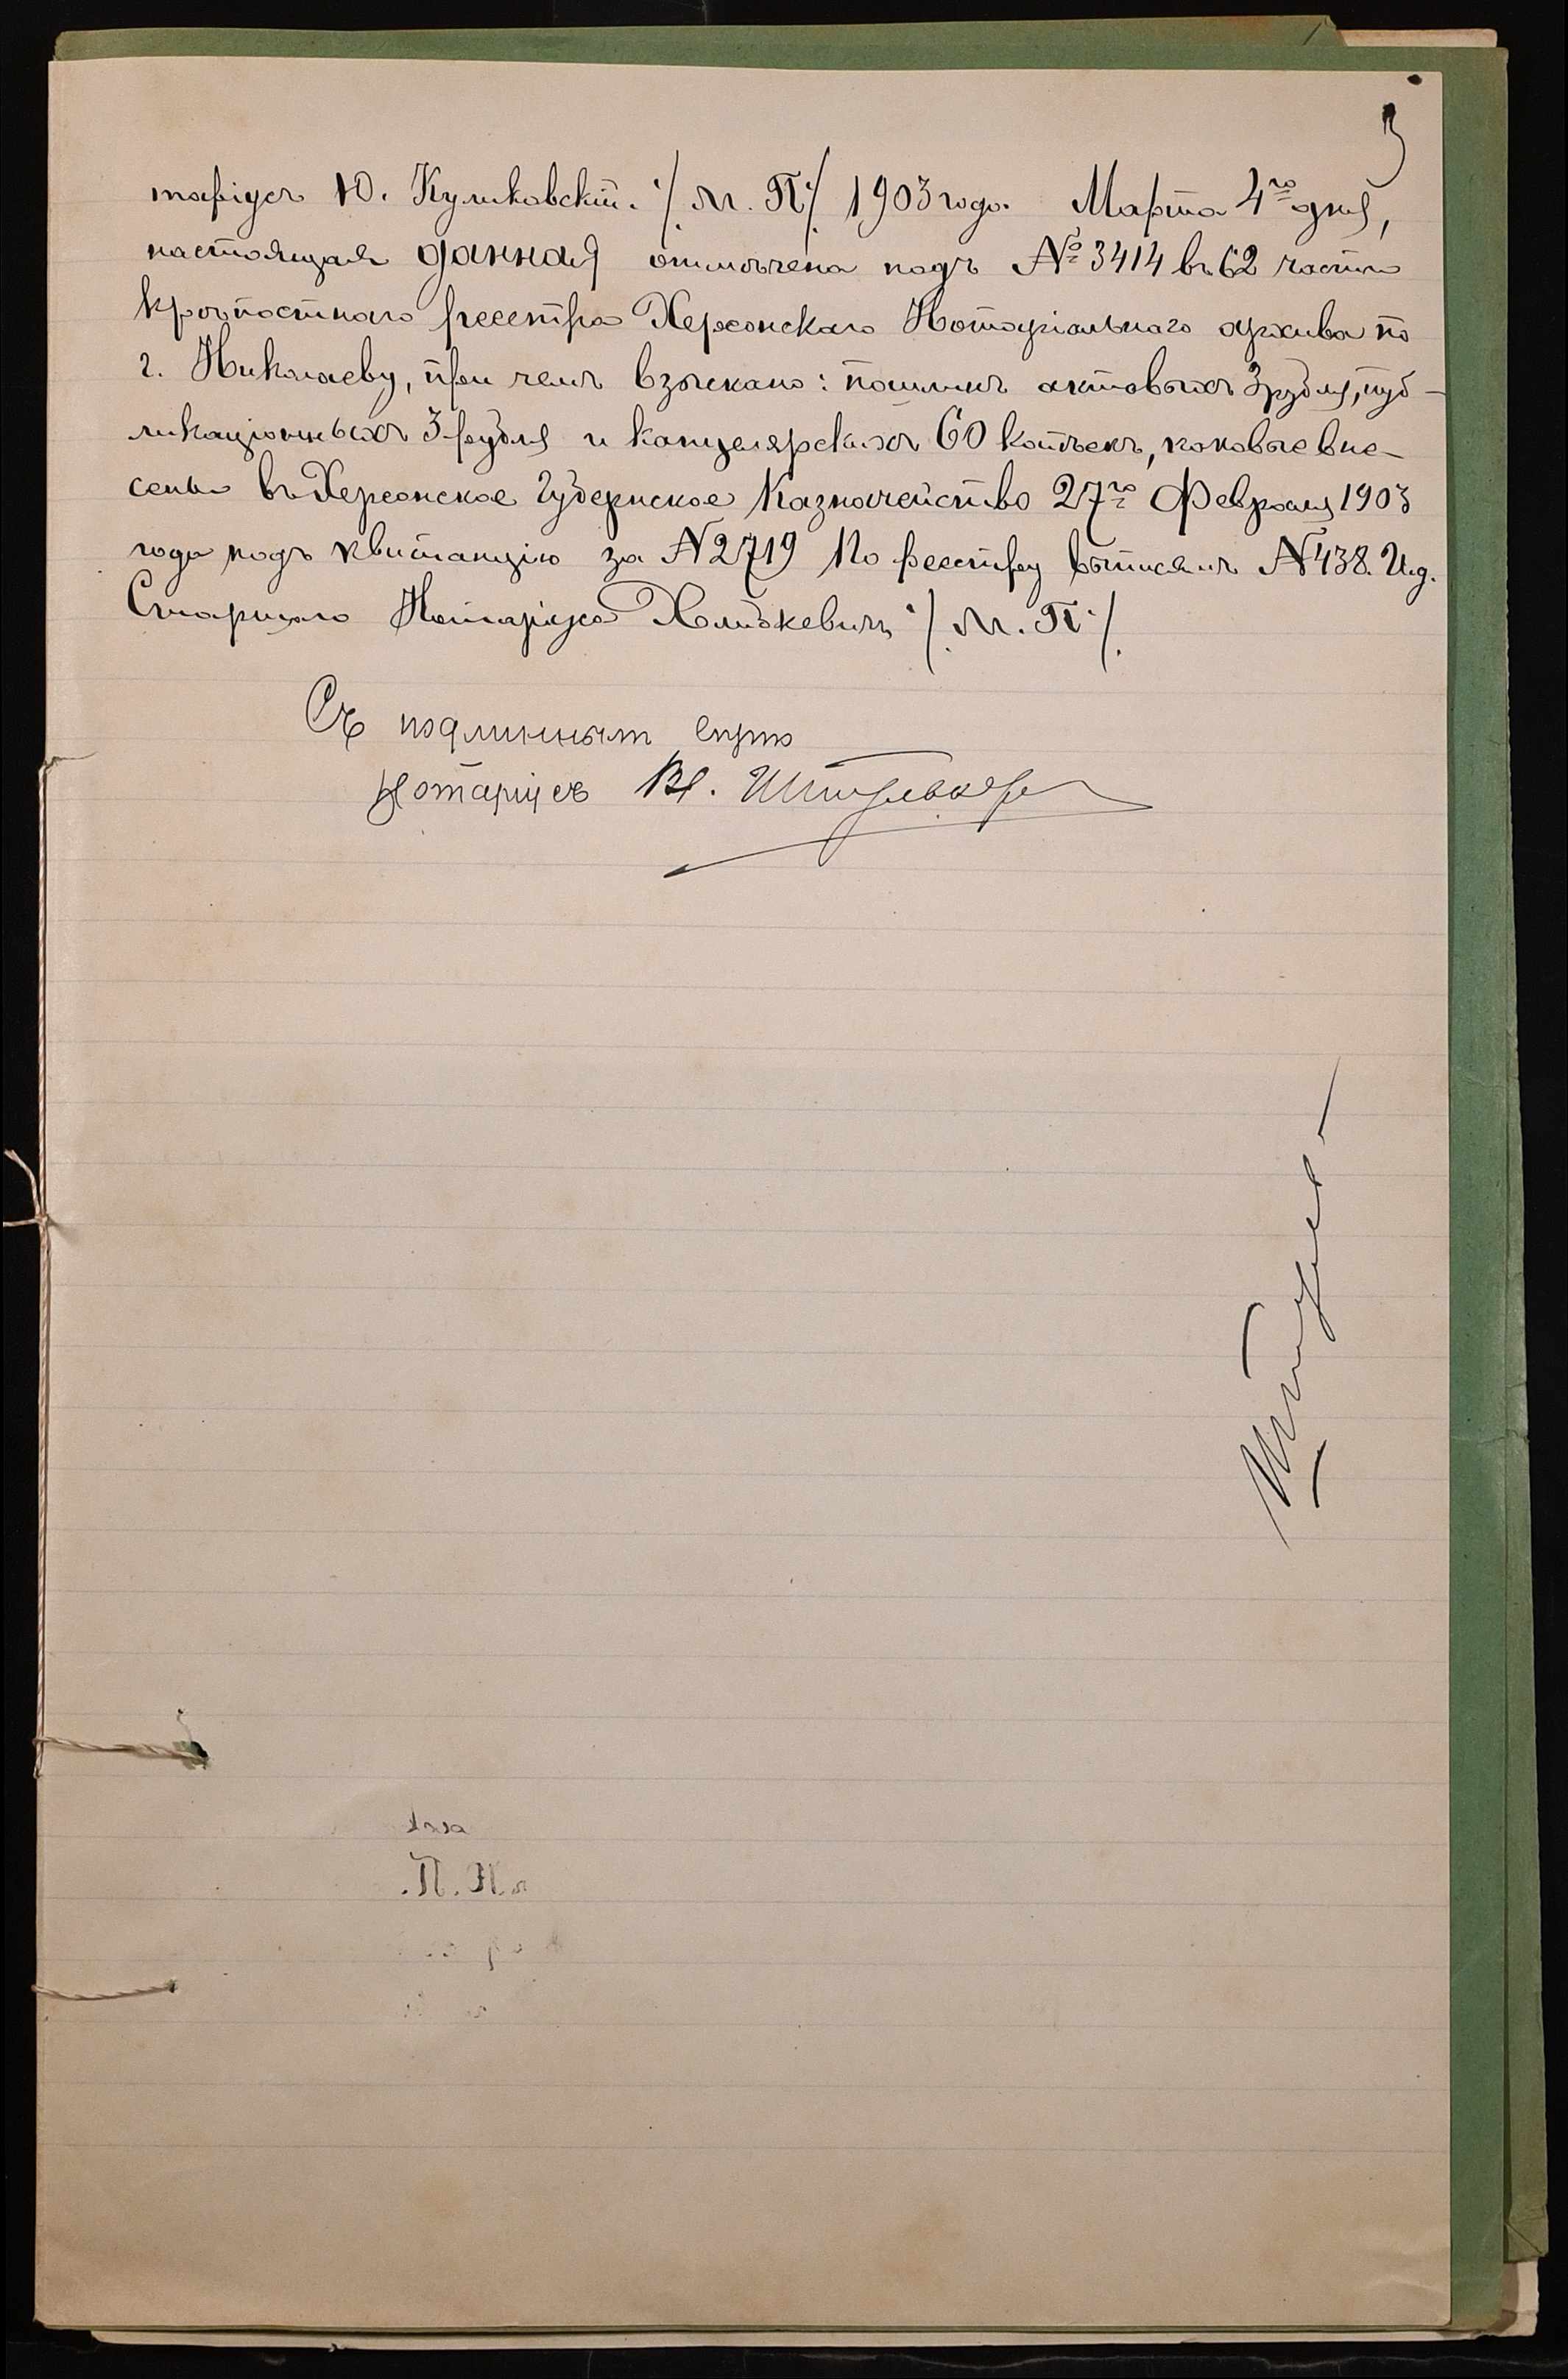 3
таріусъ Ю. Куликовскій. /М. П./ 1903 года Марта 4го дня,
настоящая данная отмѣчена подъ № 3414 въ 62 части
крѣпостнаго реестра Херсонскаго Нотаріальнаго архива по
г. Николаеву, при чемъ взыскано: пошлинъ актовыхъ 3 рубля, пуб-
ликаціонныхъ 3 рубля и канцелярскихъ 60 копѣекъ, каковые вне-
сены въ Херсонское Губернское Казначейство 27го Февраля 1903
года подъ квитанцію за N 2719 По реестру выписямъ N 438. И.д.
Старшаго Нотаріуса /М. П./
Съ подлиннымъ вѣрно
Нотаріусъ